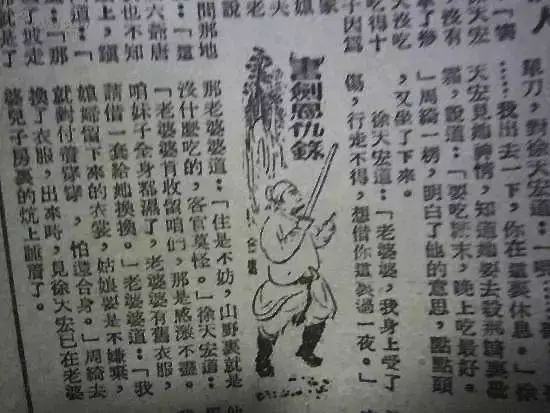 人
單刀,對徐天宏道:「喂
……我出去一下,你在這裏休息。」徐
天宏見她神情,知道她要去殺那
說道:「要吃 末,晚上吃最好。
」周綺一楞,明白了他的意思,點點頭
,又坐了下來。
徐天宏道:「老婆婆,我身上受了
傷,行走不得,想借你這裏過一夜。」
徐天宏
沒有
沒吃
吃得十
子因為
書劍恩仇錄
那老婆婆道:「住是不妨,山野裏就是
沒什麼吃的,客官莫怪。」徐天宏道:
「老婆婆肯收留咱們,那是感激不盡。
咱妹子全身都濕了,老婆婆有舊衣服,
請借一套給她換換。」老婆婆道:「我
媳婦留下來的衣裳,姑娘要是不嫌棄,
就對付着穿穿,怕還合身。」周綺去
換了衣服,出來時,見徐天宏已在老婆
婆兒子房裏的炕上睡着了。
說
間那地
六爺唐
也不知
道:「
「那
了坡走
那就是了